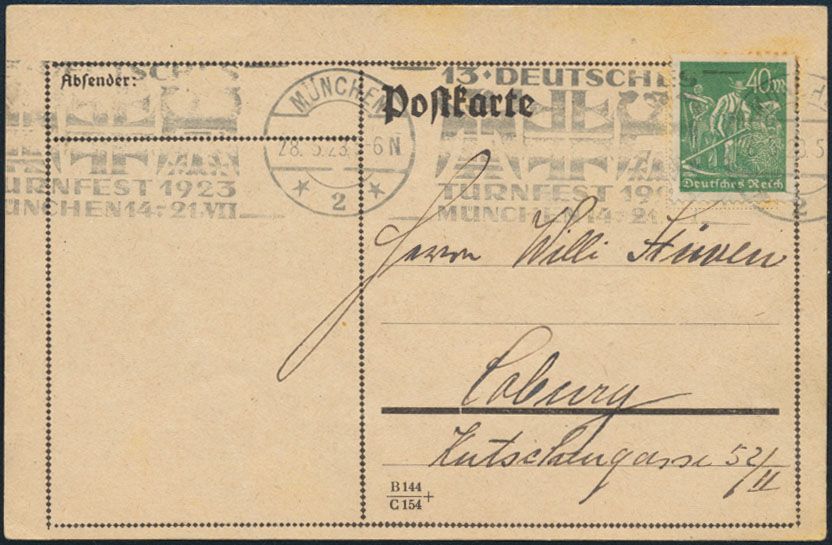 Absender:
Postkarte
DEUTSCHES
TURNFEST 1923
MÜNCHEN 14.-21.VII
MÜNCHEN
28.5.23. 6 N
2
13. DEUTSCHES
TURNFEST 19
MÜNCHEN 14.-21.
40m
Deutsches Reich
2
Herrn Willi Stüven
Coburg
52/II
B 144
C 154 +